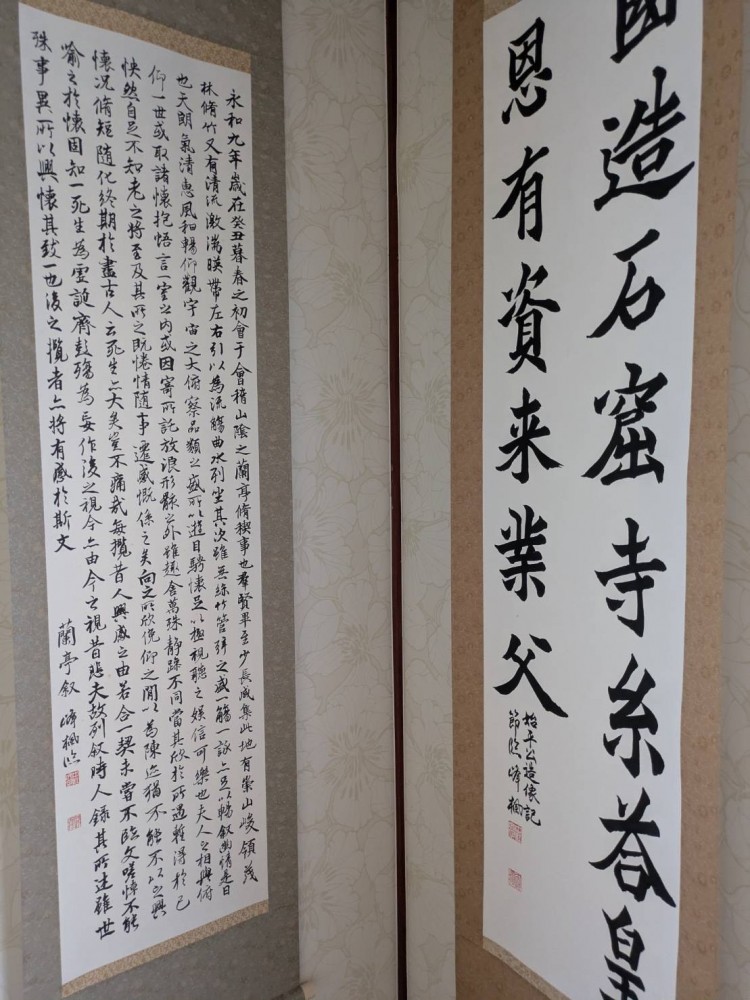 國造石窟寺系荅皇
恩有資来業父
始平公造像記
節臨 峰楓
永和九年歲在癸丑暮春之初會于會稽山陰之蘭亭脩稧事也羣賢畢至少長咸集此地有崇山峻領茂
林脩竹又有清流激湍暎帶左右引以為流觴曲水列坐其次雖無絲竹管弦之盛一觴一詠亦足以暢叙幽情是日
也天朗氣清惠風和暢仰觀宇宙之大俯察品類之盛所以遊目騁懷足以極視聽之娛信可樂也夫人之相與俯
仰一世或取諸懷抱悟言一室之內或因寄所託放浪形骸之外雖趣舍萬殊靜躁不同當其欣於所遇暫得於己
快然自足不知老之將至及其所之既惓情隨事遷感慨係之矣向之所欣俛仰之閒以為陳迹猶不能不以之興
懷況脩短隨化終期於盡古人云死生亦大矣豈不痛哉每攬昔人興感之由若合一契未嘗不臨文嗟悼不能
喻之於懷固知一死生為虛誕齊彭殤為妄作後之視今亦由今之視昔悲夫故列叙時人錄其所述雖世
殊事異所以興懷其致一也後之攬者亦將有感於斯文
蘭亭叙 峰楓臨